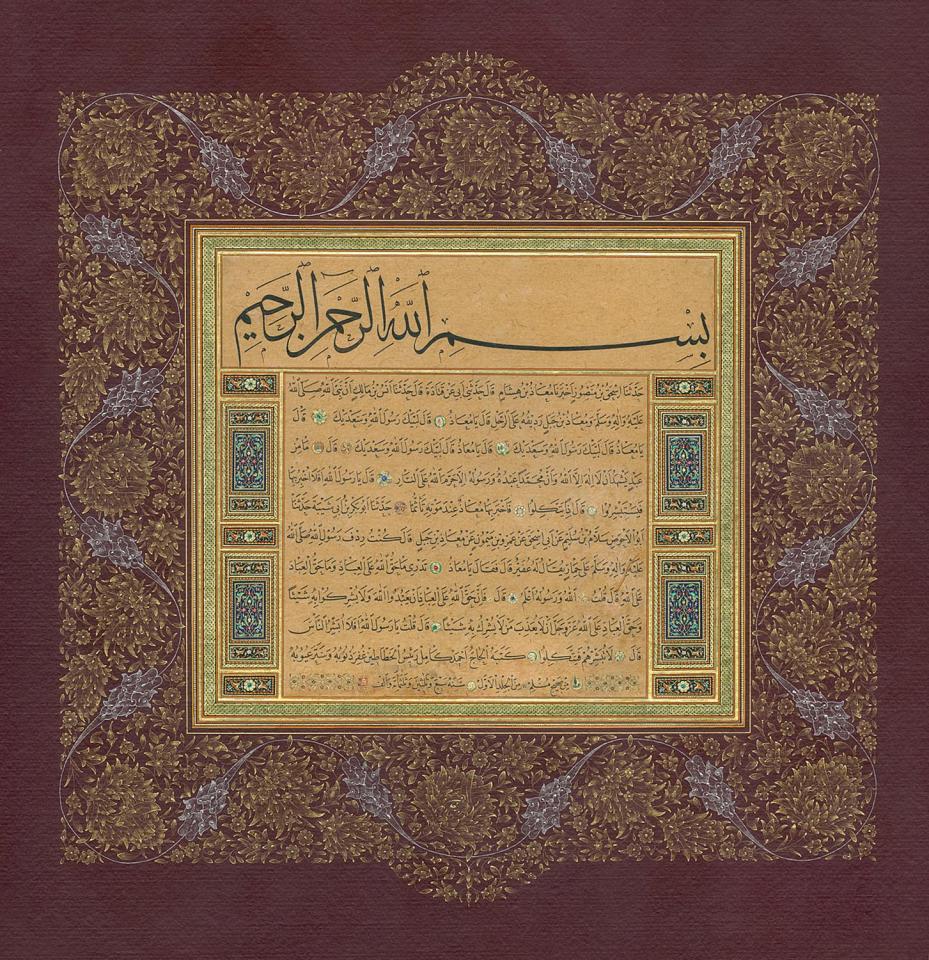 بسم الله الرحمن الرحيم
حدثنا اسحق بن منصور اخبرنا معاذ بن هشام قال حدثني ابي عن قتادة قال حدثنا انس بن مالك ان نبي الله صلى الله
عليه واله وسلم ومعاذ بن جبل رديفه على الرحل قال يا معاذ قال لبيك رسول الله وسعديك قال
يا معاذ قال لبيك رسول الله وسعديك قال يا معاذ قال لبيك رسول الله وسعديك قال ما من
عبد يشهد ان لا اله الا الله وان محمدا عبده ورسوله الا حرمه الله على النار قال يا رسول الله افلا اخبر بها
فيستبشروا قال اذا يتكلوا فاخبر بها معاذ عند موته تأثما حدثنا ابو بكر بن ابي شيبة حدثنا
ابو الاحوص سلام بن سليم عن ابي اسحق عن عمرو بن ميمون عن معاذ بن جبل قال كنت ردف رسول الله صلى الله
عليه واله وسلم على حمار يقال له عفير قال فقال يا معاذ تدري ما حق الله على العباد وما حق العباد
على الله قال قلت الله ورسوله اعلم قال فان حق الله على العباد ان يعبدوا الله ولا يشركوا به شيئا
وحق العباد على الله عز وجل ان لا يعذب من لا يشرك به شيئا قال قلت يا رسول الله افلا ابشر الناس
قال لا تبشرهم فيتكلوا كتبه الحاج احمد كامل رئيس الخطاطين غفر ذنوبه وستر عيوبه
من صحيح مسلم من الجلد الاول سنة سبع وثلثين وثلثمائة والف